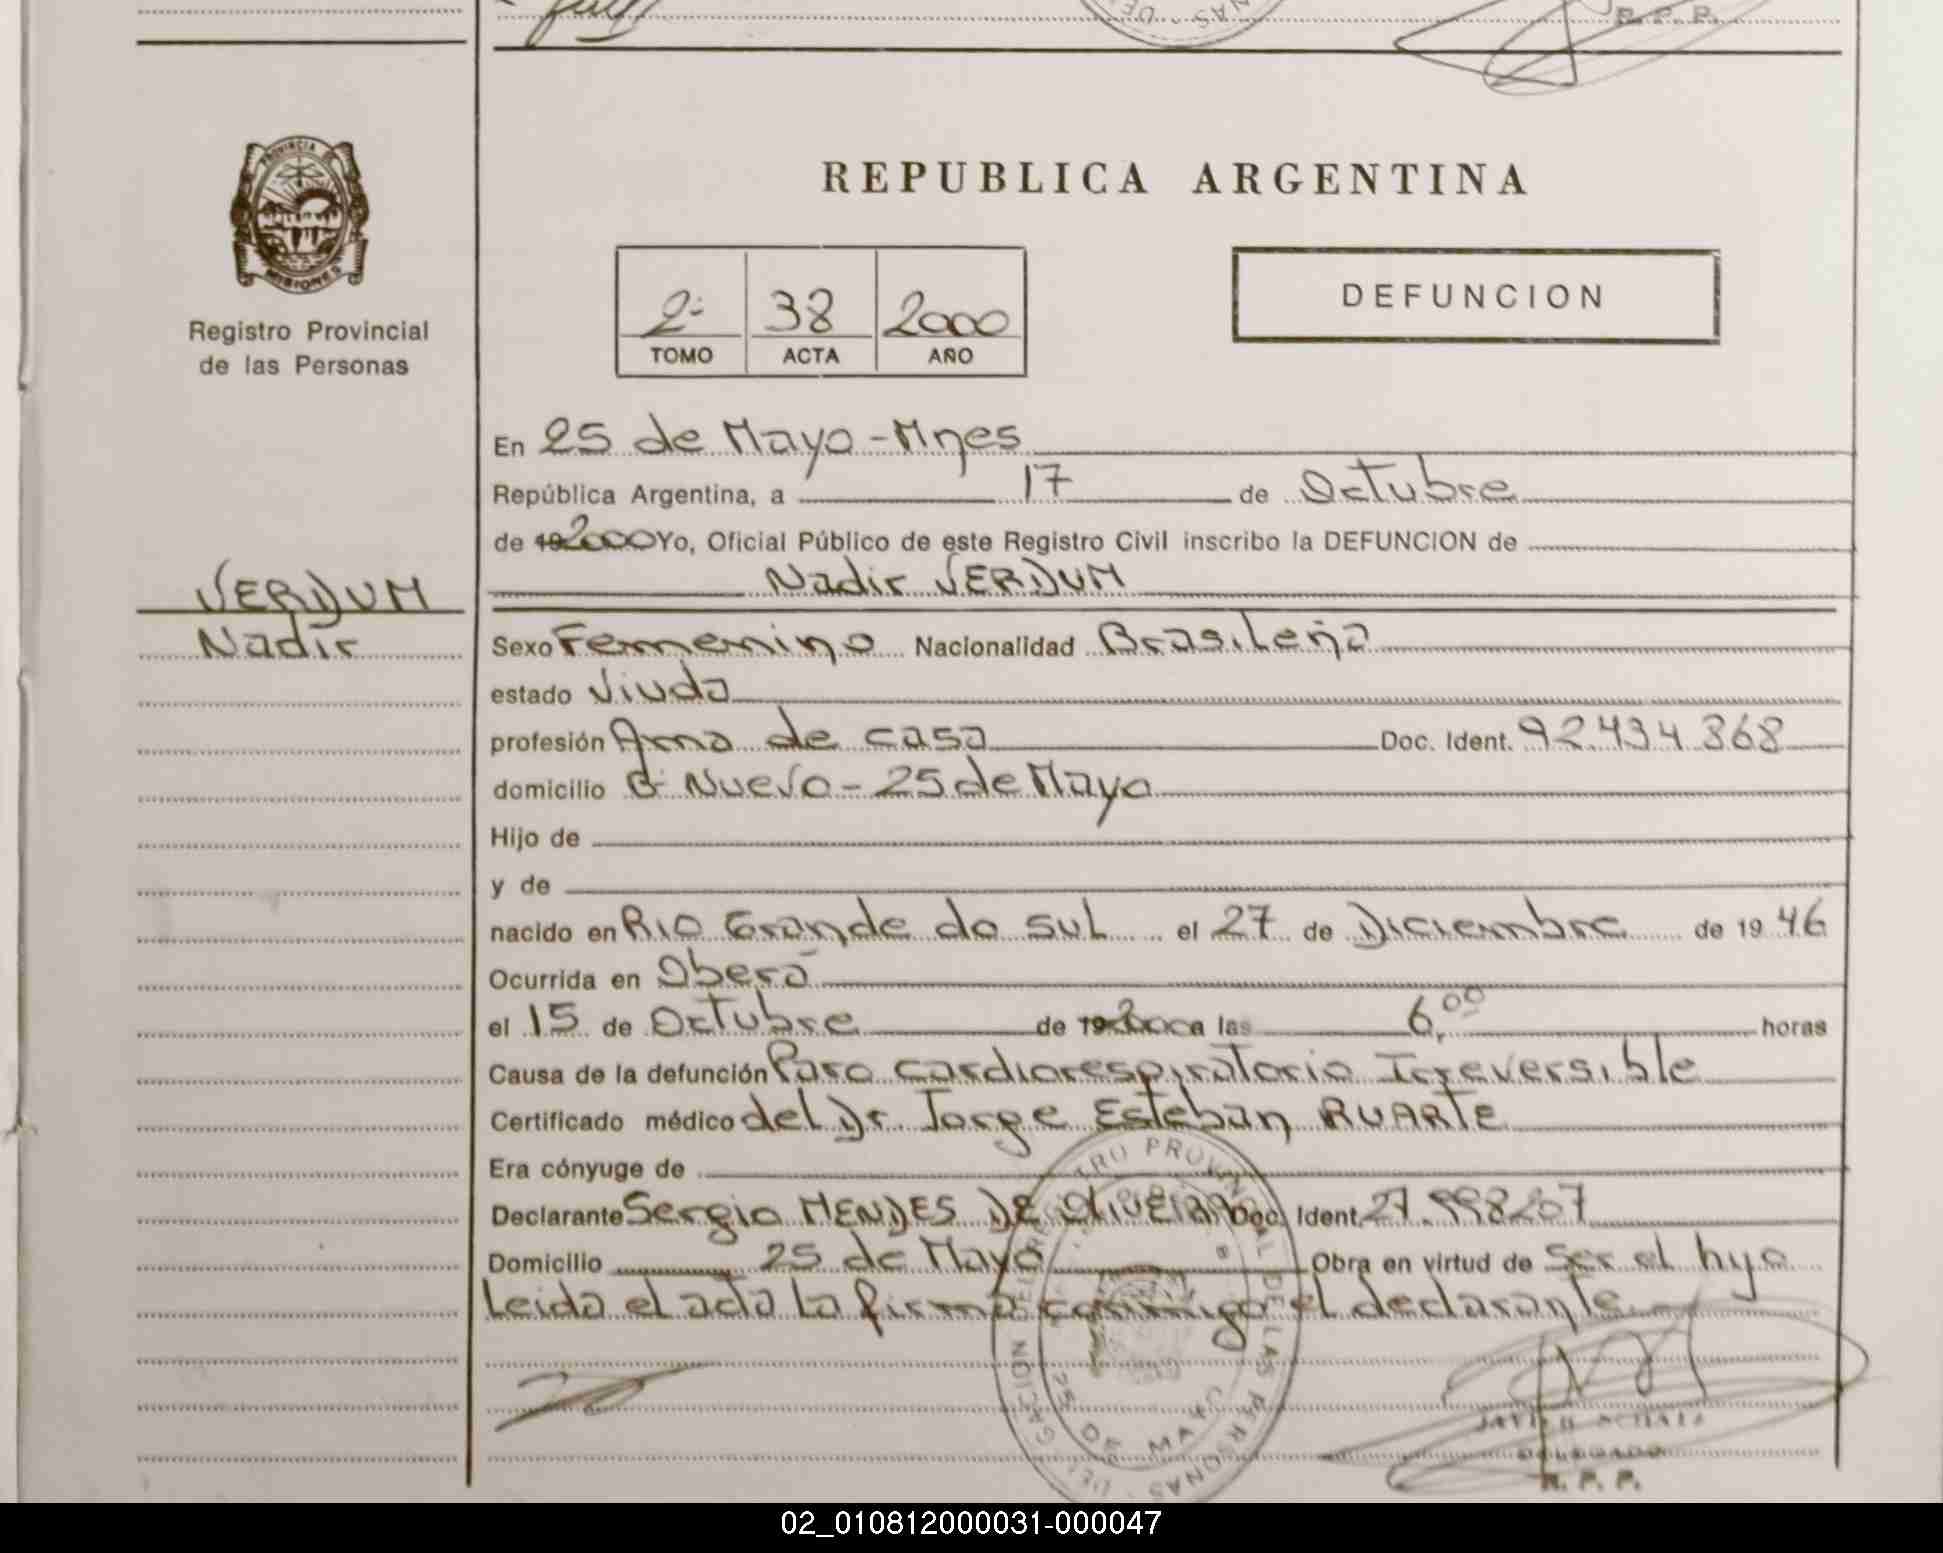 R. P. P.
PROVINCIA DE
MISIONES
Registro Provincial
de las Personas
REPUBLICA ARGENTINA
2º 38 2000
TOMO ACTA AÑO
DEFUNCION
En 25 de Mayo - Mnes
República Argentina, a 17 de Octubre
de 19 2000 Yo, Oficial Público de este Registro Civil inscribo la DEFUNCION de
Nadir VERDUM
VERDUM
Nadir
Sexo Femenino Nacionalidad Brasileña
estado Viuda
profesión Ama de casa Doc. Ident. 92.434.868
domicilio Bº Nuevo - 25 de Mayo
Hijo de
y de
nacido en Rio Grande do sul el 27 de Diciembre de 19 46
Ocurrida en Oberá
el 15 de Octubre de 19 2000 a las 6,00 horas
Causa de la defunción Paro cardiorespiratorio Irreversible
Certificado médico del Dr. Jorge Esteban RUARTE
Era cónyuge de
Declarante Sergio MENDES DE OliVEIRA Doc. Ident. 27.998207
Domicilio 25 de Mayo Obra en virtud de Ser el hijo
Leida el acta la firma conmigo el declarante
REGISTRO PROVINCIAL DE LAS PERSONAS
25 DE MAYO
JAVIER
DELEGADO
R. P. P.
02_010812000031-000047